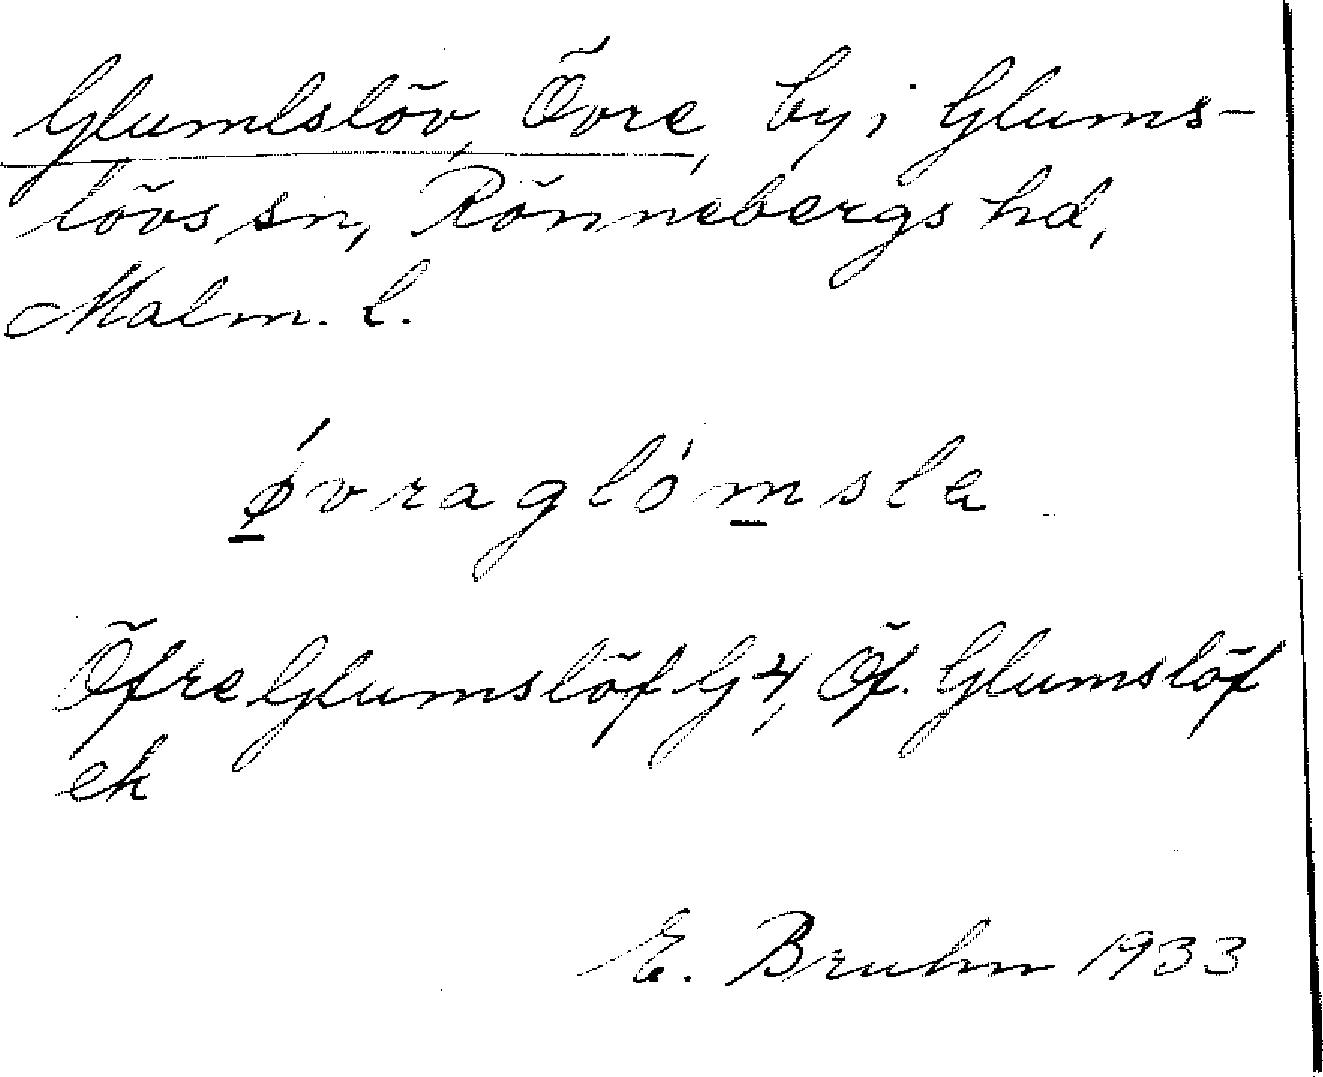 Glumlslöv, Övre, by i Glums-
lövs sn, Rönnebergs hd,
Malm. l.
ǿvraglómsla
Öfre Glumslöf G 4, Öf. Glumslöf
ek
E. Bruhn 1933